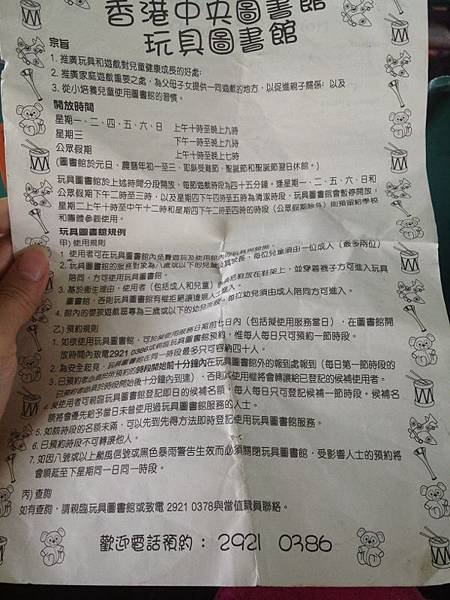 香港中央圖書館
玩具圖書館
宗旨
1. 推廣玩具和遊戲對兒童健康成長的好處;
2. 推廣家庭遊戲重要之處,為父母子女提供一同遊戲的地方,以促進親子關係; 以及
3. 從小培養兒童使用圖書館的習慣。
開放時間
星期一、二、四、五、六、日 上午十時至晚上九時
星期三 下午一時至晚上九時
公眾假期 上午十時至晚上七時
(圖書館於元日、農曆年初一至三、耶穌受難節、聖誕節和聖誕節翌日休館。)
玩具圖書館於上述時間分段開放,每節遊戲時段為四十五分鐘。逢星期一、二、五、六、日和
公眾假期下午二時至三時,以及星期四下午四時至五時為清潔時段,玩具圖書館會暫停開放,
星期二上午十時至中午十二時和星期四下午二時至四時的時段(公眾假期除外)則預留給學校
和團體參觀使用。
玩具圖書館規例
甲) 使用規則
1. 使用者可在玩具圖書館內免費遊玩及使用館內的
2. 玩具圖書館的服務對象為八歲或以下的兒童 每位兒童須由一位成人(最多兩位)
陪同,方可使用玩具圖書館。
3. 基於衛生理由,使用者(包括成人和兒童) 放在鞋架上,並穿着襪子方可進入玩具
圖書館,否則玩具圖書館有權拒絕讓違規人士
4. 館內的嬰孩遊戲區專為三歲或以下的幼兒 每位幼兒須由成人陪同方可進入。
乙) 預約規則
1. 如欲使用玩具圖書館,可於擬使用服務日期前七日內(包括擬使用服務當日),在圖書館開
放時間內致電2921 0386或親臨玩具圖書館預約,惟每人每日只可預約一節時段。
2. 為安全起見,玩具圖書館在同一時段最多只可容納四十人。
3. 已預約者必須於所預約的時段開始前十分鐘內在玩具圖書館外的報到處報到(每日第一節時段的
已預約者必須於時段開始後十分鐘內到達),否則其使用權將會轉讓給已登記的候補使用者。
4. 擬使用者可親臨玩具圖書館登記即日的候補名額,每人每日只可登記候補一節時段。候補名
額將會優先給予當日未曾使用過玩具圖書館服務的人士。
5. 如該時段的名額未滿,可以先到先得方法即時登記使用玩具圖書館服務。
6. 已預約時段不可轉讓他人。
7. 如因八號或以上颱風信號或黑色暴雨警告生效而必須關閉玩具圖書館,受影響人士的預約將
會順延至下星期同一日同一時段。
丙) 查詢
如有查詢,請親臨玩具圖書館或致電 2921 0378與當值職員聯絡。
歡迎電話預約: 2921 0386